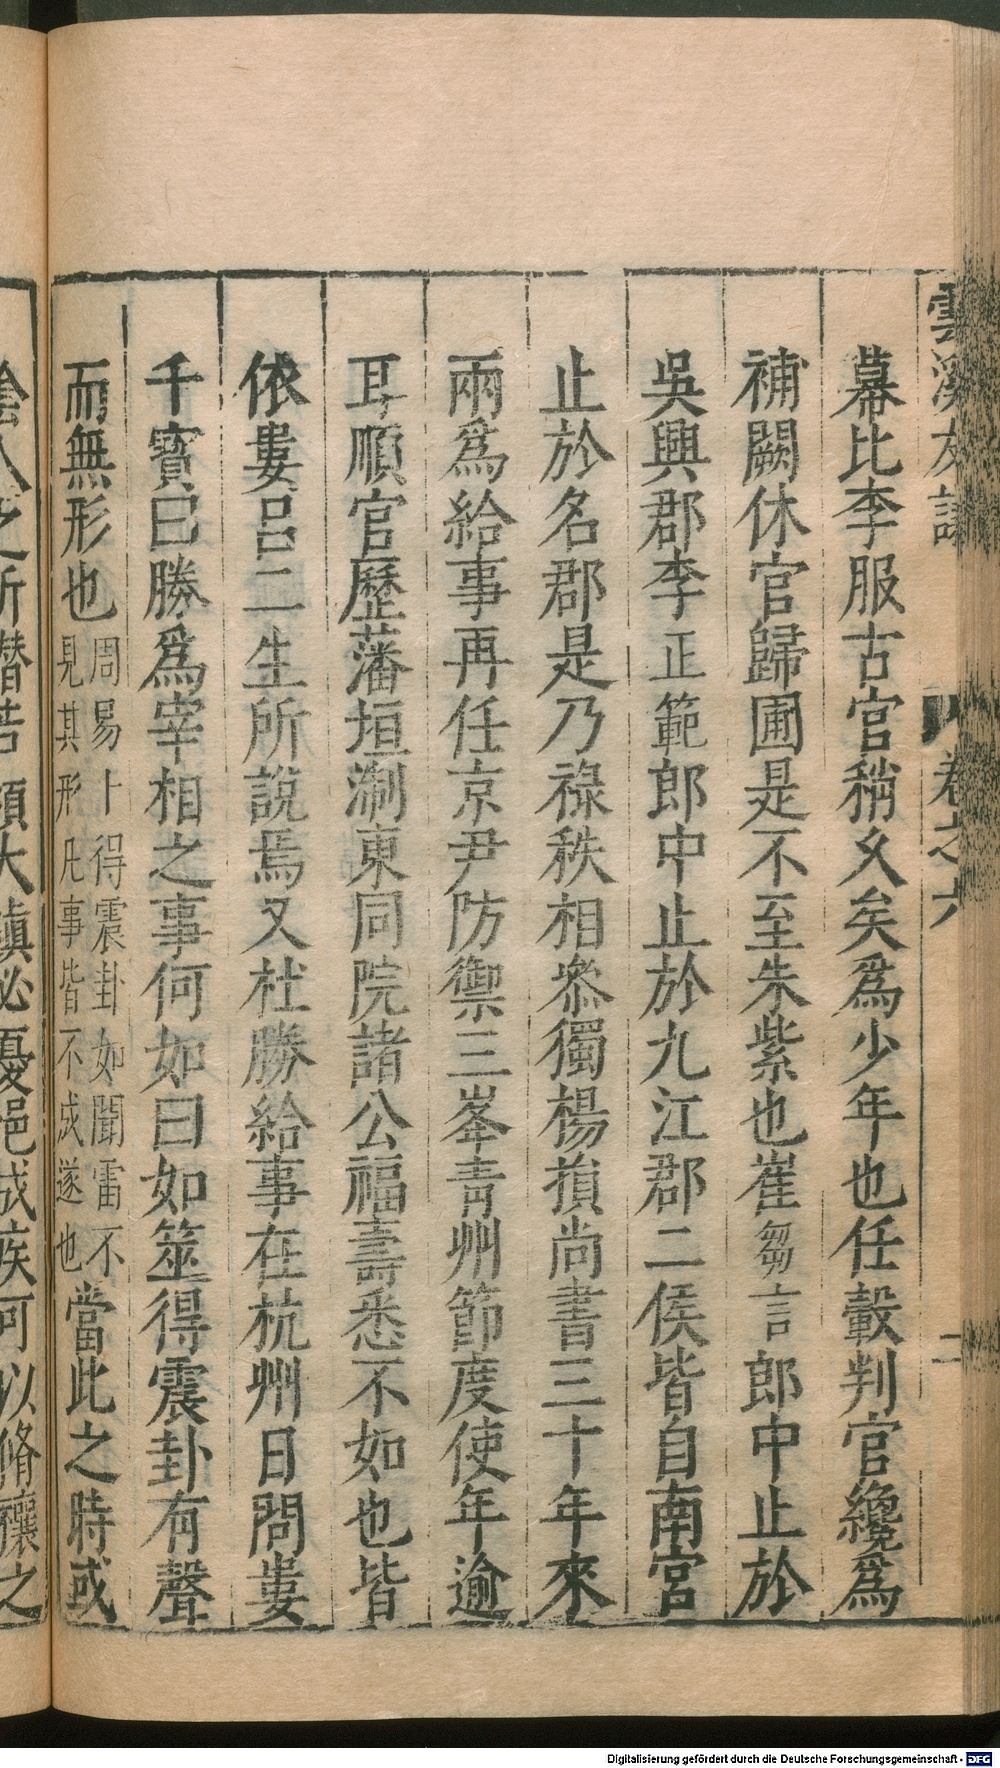 雲溪友議
卷之六
二
幕比李服古官稍久矣爲少年也任轂判官纔爲
補闕休官歸圃是不至朱紫也崔芻言郎中止於
吳興郡李正範郎中止於九江郡二侯皆自南宮
止於名郡是乃祿秩相叅獨楊損尚書三十年來
兩爲給事再任京尹防禦三峯靑州節度使年逾
耳順官歷藩垣淛東同院諸公福壽悉不如也皆
依婁呂二生所說焉又杜勝給事在杭州日問婁
千寳曰勝爲宰相之事何如曰如筮得震卦有聲
而無形也周易卜得震卦如聞雷不
見其形凡事皆不成遂也當此之時或
陰人之所譖若領大鎭必憂悒成疾可以脩禳之
Digitalisierung gefördert durch die Deutsche Forschungsgemeinschaft - DFG